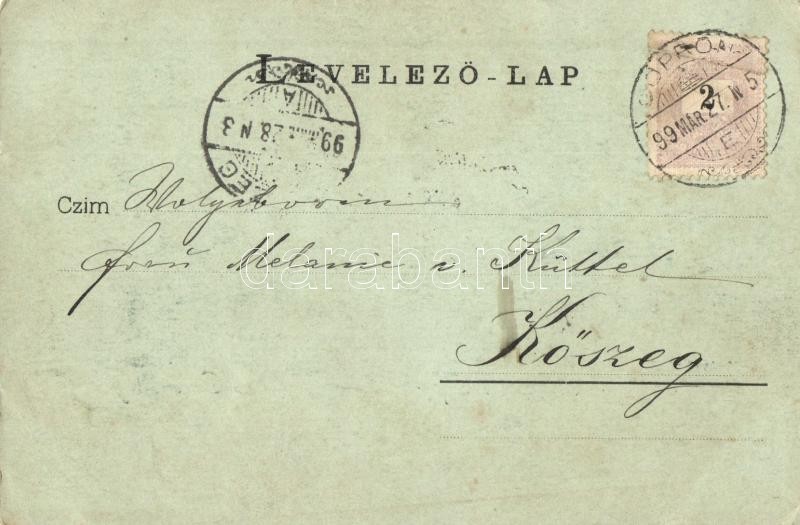 LEVELEZŐ-LAP
SOPRON
2
99 MÁR. 27. N 5
99 28. N 3
Czim Wolgeboren
Frau Melanie v. Küttel
darabanth
Kőszeg